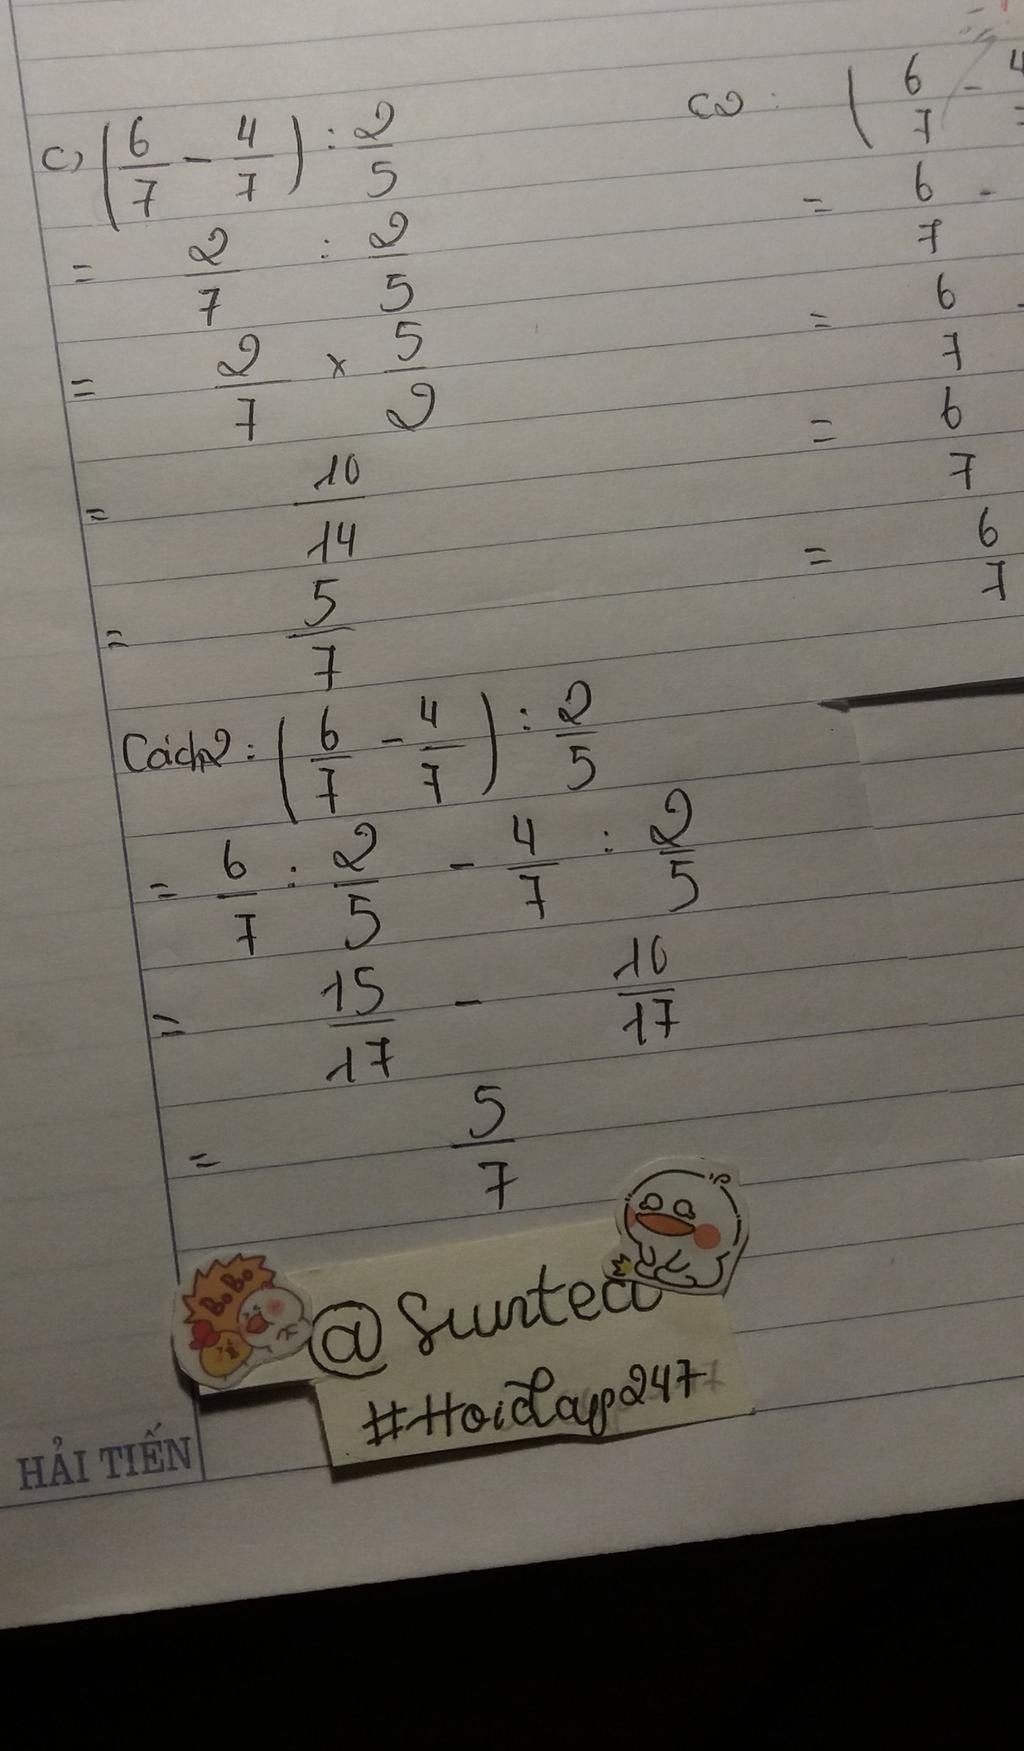 c) (6/7 - 4/7) : 2/5
= 2/7 : 2/5
= 2/7 x 5/2
= 10/14
= 5/7
Cách2: (6/7 - 4/7) : 2/5
= 6/7 : 2/5 - 4/7 : 2/5
= 15/17 - 10/17
= 5/7
C2: (6/7 - 4
= 6/7 -
= 6/7 -
= 6/7
= 6/7
BoBo
@Suntea
#Hoidap247
HẢI TIẾN